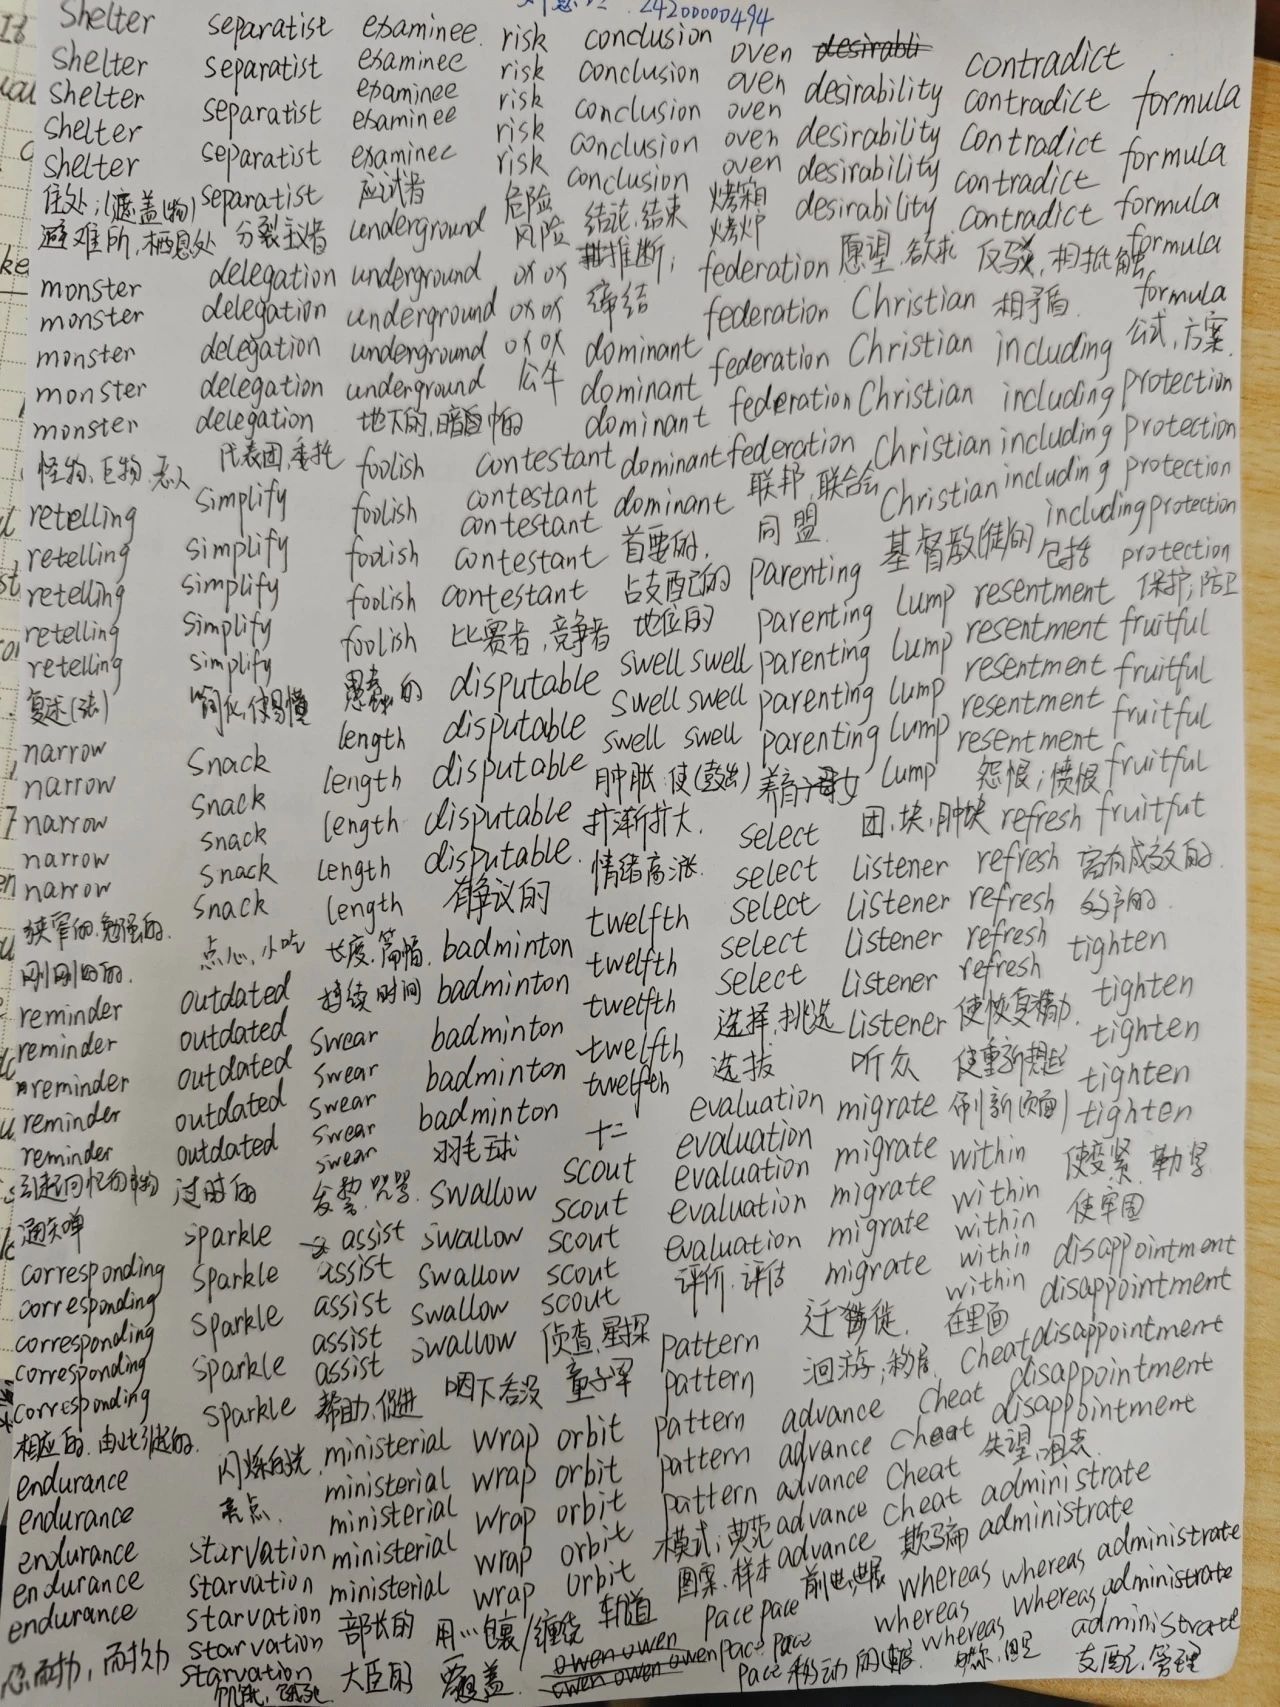 24200000494
shelter
shelter
shelter
shelter
shelter
住处;(遮盖(物)
避难所,栖息处
monster
monster
monster
monster
monster
怪物,巨物,恶人
retelling
retelling
retelling
retelling
retelling
复述(法)
narrow
narrow
narrow
narrow
narrow
狭窄的,勉强的
刚刚的
reminder
reminder
reminder
reminder
reminder
引起回忆的事物
通知单
corresponding
corresponding
corresponding
corresponding
corresponding
相应的,由此引起的
endurance
endurance
endurance
endurance
endurance
忍耐力,耐久力
separatist
separatist
separatist
separatist
separatist
分裂主义者
delegation
delegation
delegation
delegation
delegation
代表团,委托
simplify
simplify
simplify
simplify
simplify
简化,使易懂
snack
snack
snack
snack
snack
点心,小吃
outdated
outdated
outdated
outdated
outdated
过时的
sparkle
sparkle
sparkle
sparkle
sparkle
闪烁
亮点
starvation
starvation
starvation
starvation
starvation
饥饿,饿死
examinee
examinee
examinee
examinee
examinee
应试者
underground
underground
underground
underground
underground
地下的,暗中的
foolish
foolish
foolish
foolish
foolish
愚蠢的
length
length
length
length
length
长度,篇幅
持续时间
swear
swear
swear
swear
发誓,咒骂
assist
assist
assist
assist
assist
帮助,促进
ministerial
ministerial
ministerial
ministerial
ministerial
部长的
大臣的
risk
risk
risk
risk
risk
危险
风险
ox ox
ox ox
ox ox
公牛
contestant
contestant
contestant
contestant
contestant
比赛者,竞争者
disputable
disputable
disputable
disputable
disputable
有争议的
badminton
badminton
badminton
badminton
badminton
羽毛球
swallow
swallow
swallow
swallow
swallow
咽下吞没
wrap
wrap
wrap
wrap
wrap
用…包裹/缠绕
覆盖
conclusion
conclusion
conclusion
conclusion
conclusion
结论,结束
推断;
缔结
dominant
dominant
dominant
dominant
dominant
首要的,
占支配的
地位的
swell swell
swell swell
swell swell
肿胀,使(鼓出)
扩大
情绪高涨
twelfth
twelfth
twelfth
twelfth
twelfth
十二
scout
scout
scout
scout
scout
侦查,星探
童子军
orbit
orbit
orbit
orbit
orbit
轨道
owen owen
owen owen owen
oven
oven
oven
oven
oven
烤箱
烤炉
federation
federation
federation
federation
federation
联邦,联合会
同盟
parenting
parenting
parenting
parenting
parenting
养育子女
select
select
select
select
select
选择,挑选
选拔
evaluation
evaluation
evaluation
evaluation
evaluation
评价,评估
pattern
pattern
pattern
pattern
pattern
模式;典范
图案,样本
pace pace
pace pace
pace
移动的
desirabli
desirability
desirability
desirability
desirability
愿望,欲求
Christian
Christian
Christian
Christian
Christian
基督教(徒)的
lump
lump
lump
lump
lump
团,块,肿块
listener
listener
listener
listener
listener
听众
migrate
migrate
migrate
migrate
migrate
迁徙
洄游;移居
advance
advance
advance
advance
advance
前进,进展
whereas whereas
whereas whereas
whereas
contradict
contradict
contradict
contradict
contradict
反驳,相抵触
相矛盾
including
including
including
including
including
包括
resentment
resentment
resentment
resentment
resentment
怨恨;愤恨
refresh
refresh
refresh
refresh
refresh
使恢复精力
使重新想起
刷新(页面)
within
within
within
within
within
在里面
cheat
cheat
cheat
cheat
cheat
欺骗
formula
formula
formula
formula
formula
公式,方案
protection
protection
protection
protection
protection
保护;防卫
fruitful
fruitful
fruitful
fruitful
fruitful
富有成效的
tighten
tighten
tighten
tighten
tighten
使变紧,勒紧
使牢固
disappointment
disappointment
disappointment
disappointment
disappointment
失望,沮丧
administrate
administrate
administrate
administrate
administrate
支配,管理